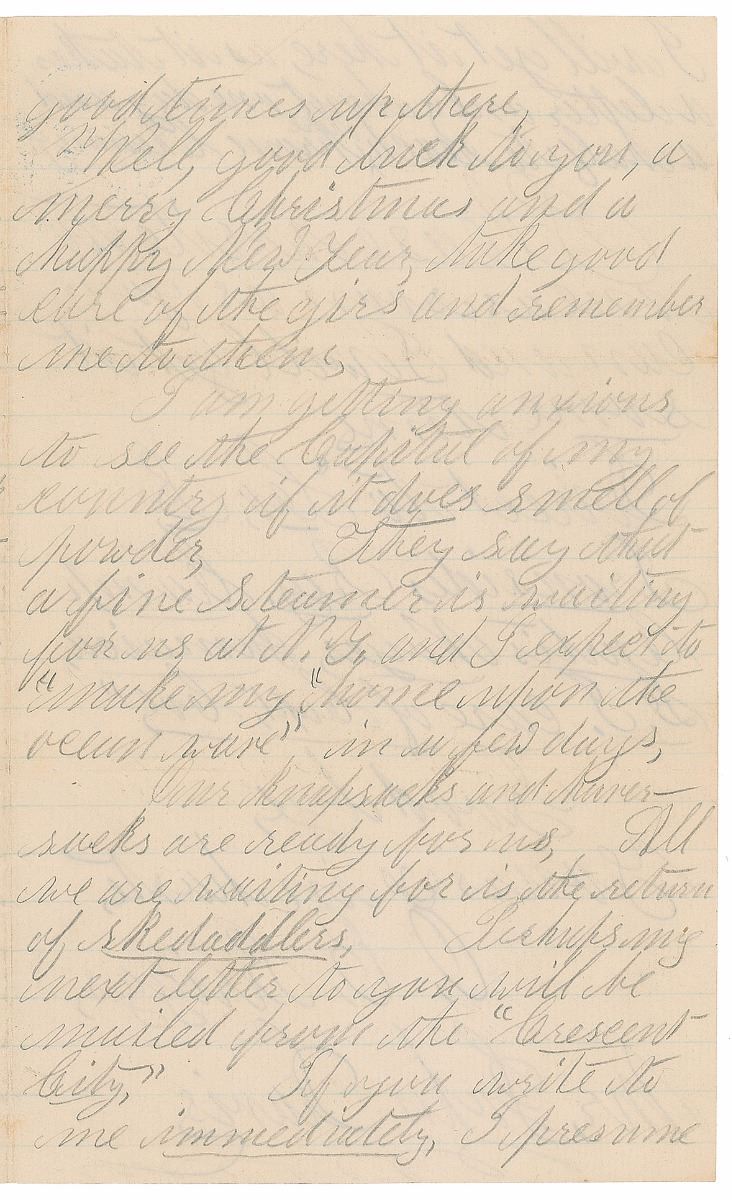 good times up there,
Well, good luck to you, a
merry Christmas and a
happy New Year, take good
care of the girls and remember
me to them,
I am getting anxious
to see the Capital of my
country if it does smell of
powder, They say that
a fine steamer is waiting
for us at N.Y. and I expect to
"make my "home upon the
ocean wave" in a few days,
Our knapsacks and haver-
sacks are ready for us, All
we are waiting for is the return
of skedaddlers, Perhaps my
next letter to you will be
mailed from the "Crescent
City," If you write to
me immediately, I presume